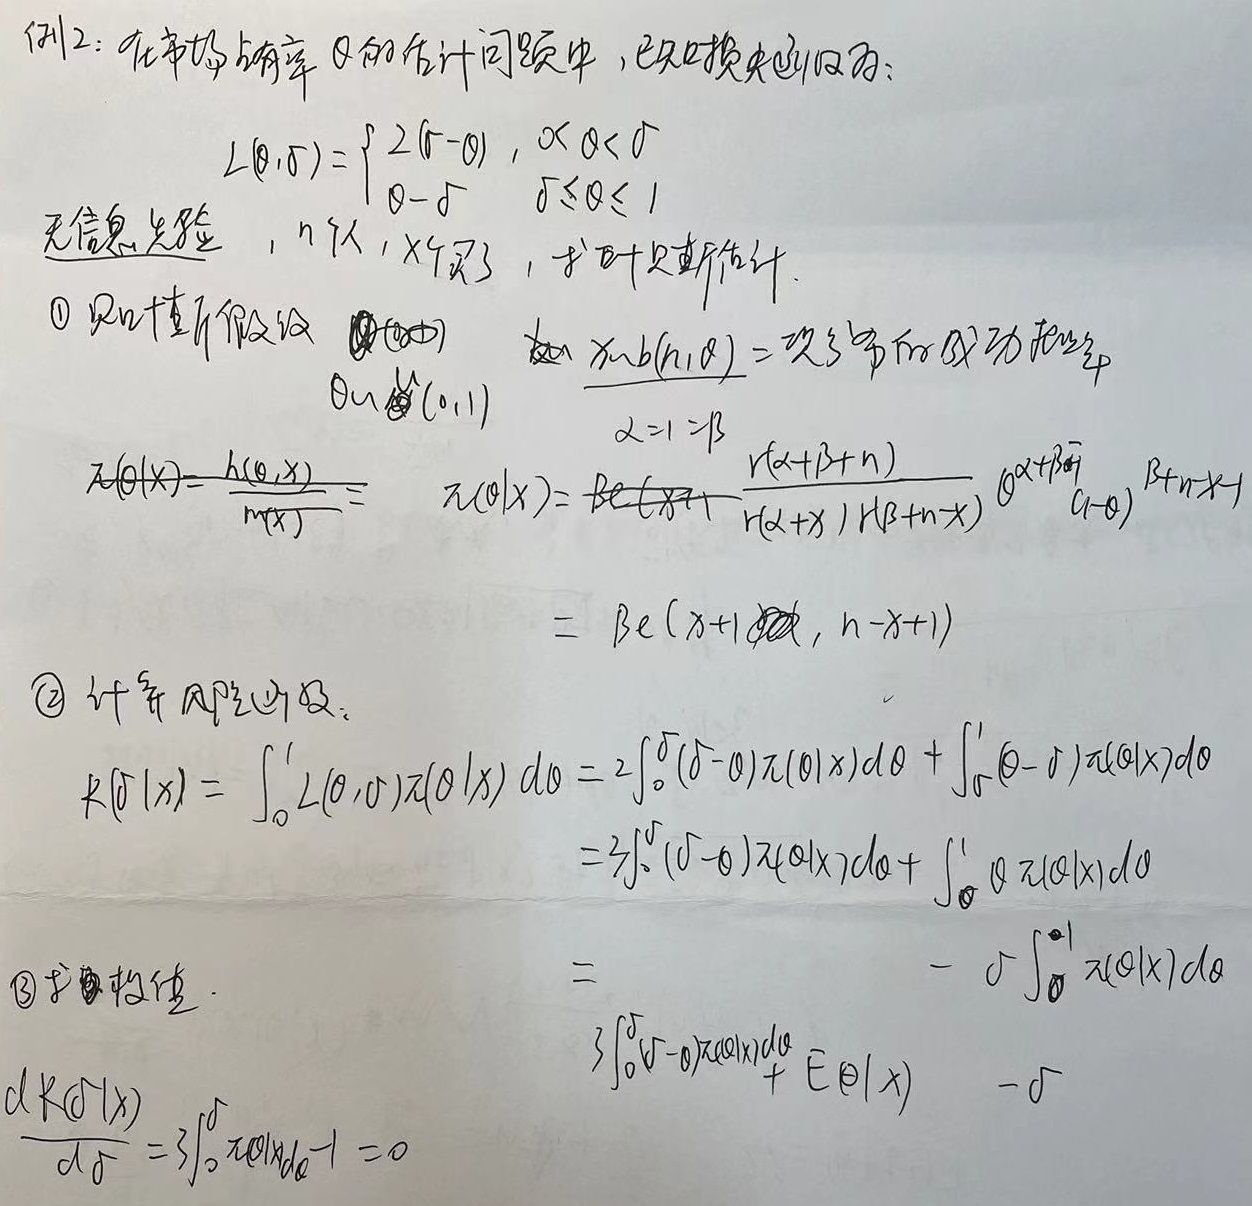 例2: 在市场占有率 θ 的估计问题中,已知损失函数为:
L(θ,δ) = { 2(δ-θ) , 0< θ < δ
θ-δ δ ≤ θ ≤ 1
无信息先验 , n个人 , x个买了 , 求 θ 贝叶斯估计.
① 贝叶斯假设 x~b(n,θ) = 次
θ~U(0,1)
α=1=β
π(θ|x) = h(θ,x) / m(x) = π(θ|x) = Be(x+1 Γ(α+β+n) / Γ(α+x)Γ(β+n-x) θ (1-θ)^{β+n-x-1}
= Be(x+1, n-x+1)
② 计算风险函数:
R(δ|x) = ∫₀¹ L(θ,δ)π(θ|x)dθ = 2∫₀^δ (δ-θ)π(θ|x)dθ + ∫_δ^1 (θ-δ)π(θ|x)dθ
= 3∫₀^δ (δ-θ)π(θ|x)dθ + ∫₀¹ θ π(θ|x)dθ
③ 求 值. = - δ∫₀¹ π(θ|x)dθ
3∫₀^δ (δ-θ)π(θ|x)dθ + E(θ|x) - δ
dR(δ|x)/dδ = 3∫₀^δ π(θ|x)dθ - 1 = 0